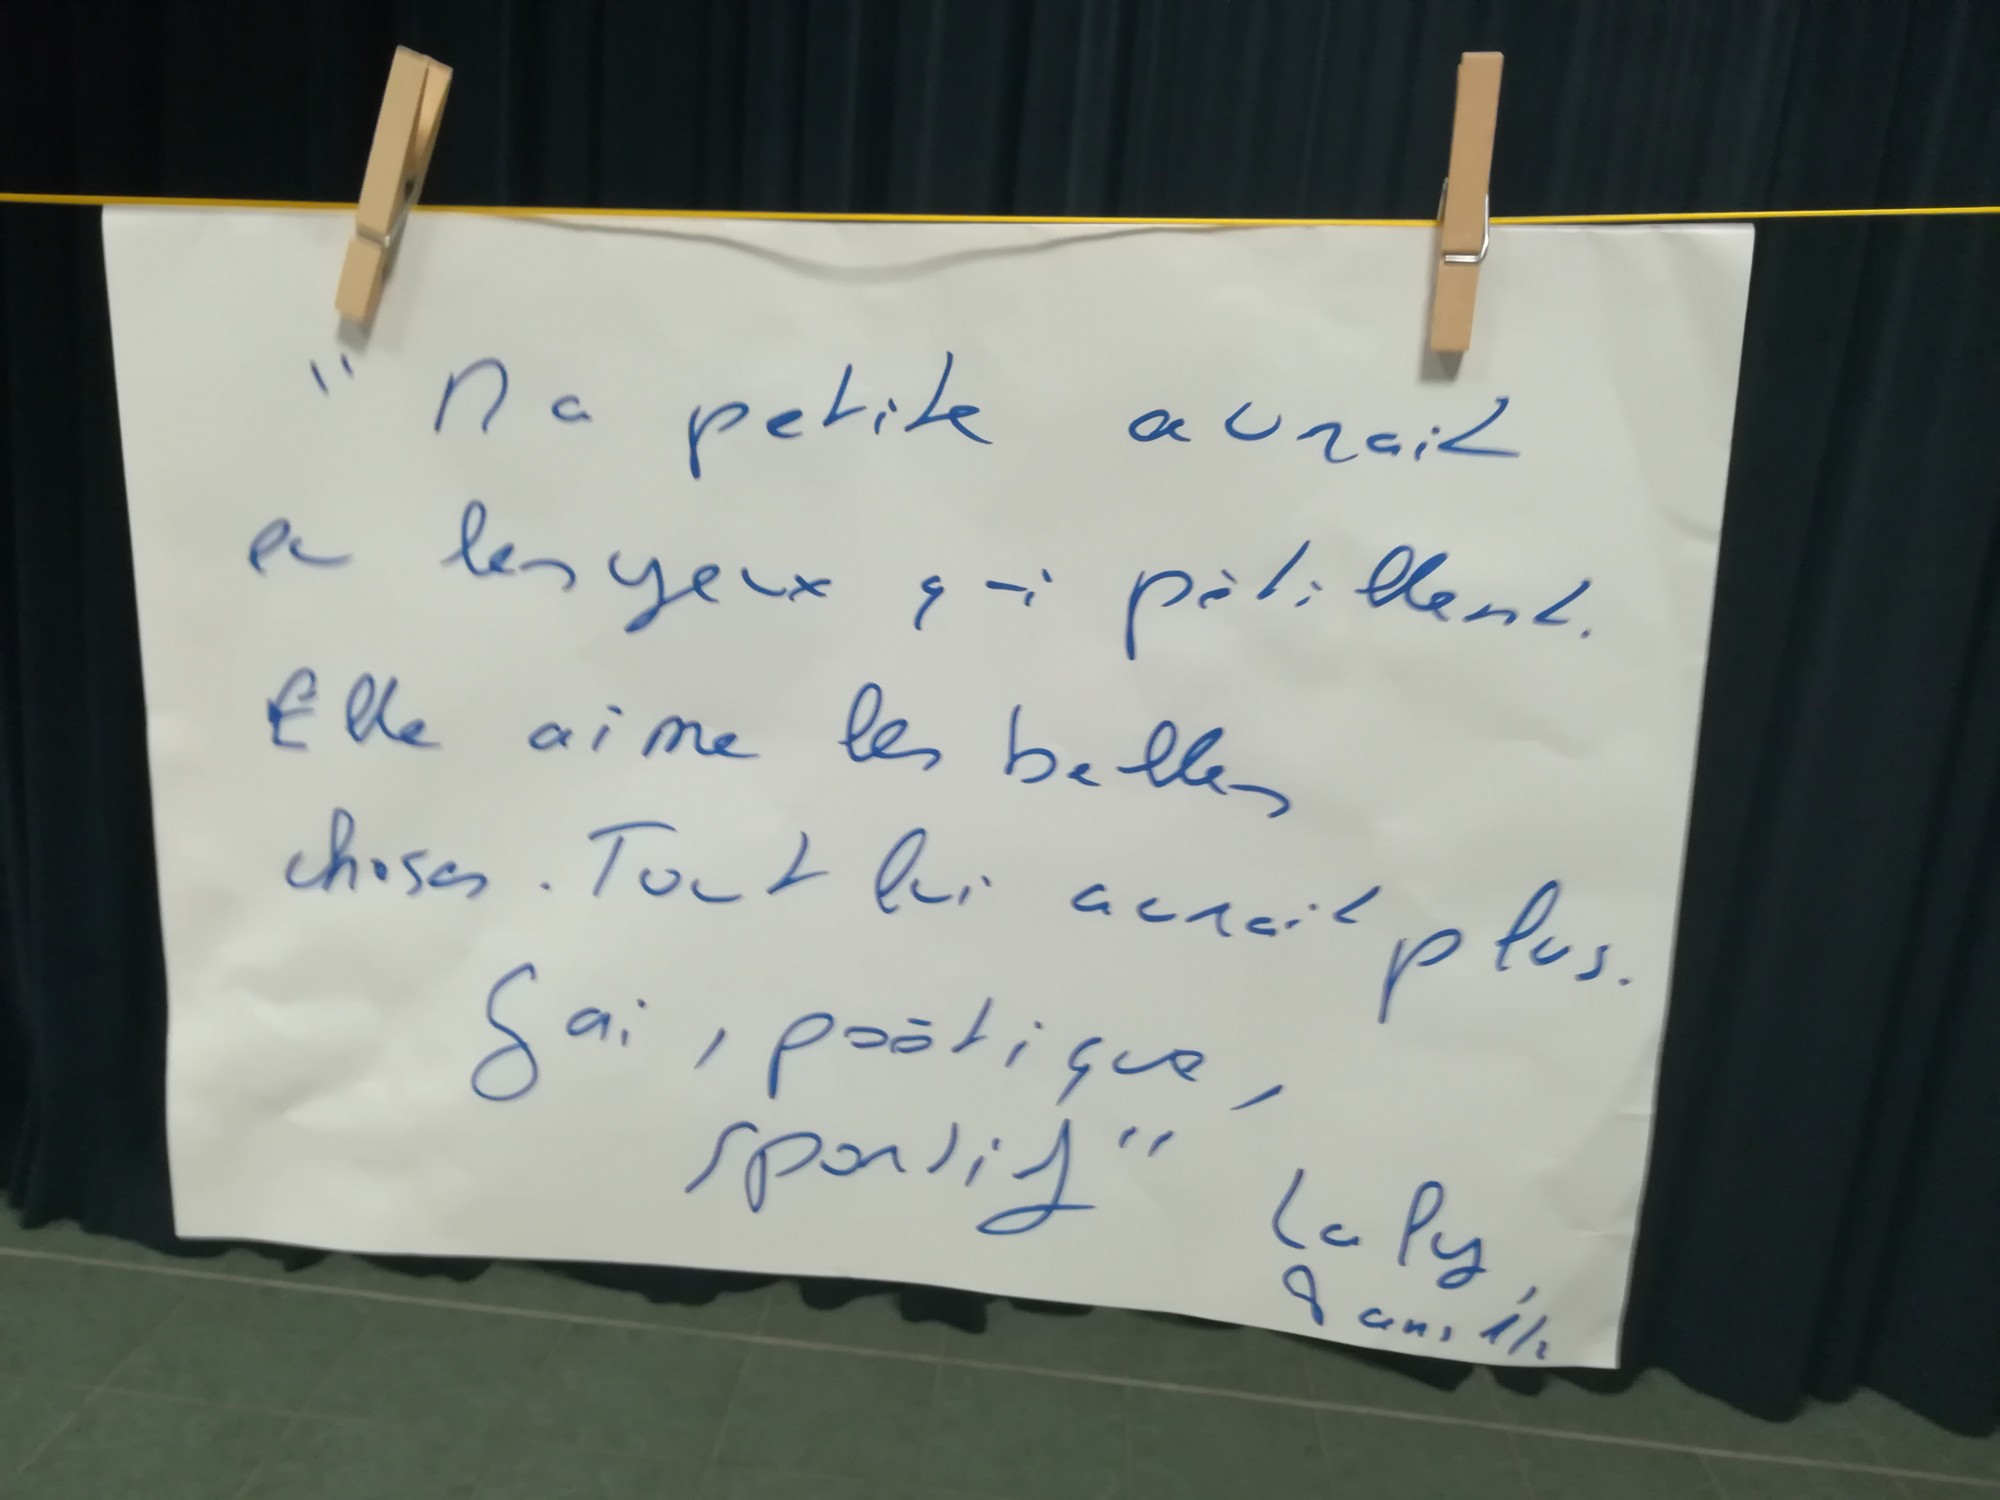 " Ma petite aurait
eu les yeux qui pétillent.
Elle aime les belles
choses. Tout lui aurait plus.
Gai, poétique,
sportif"
La Py,
8 ans 1/2